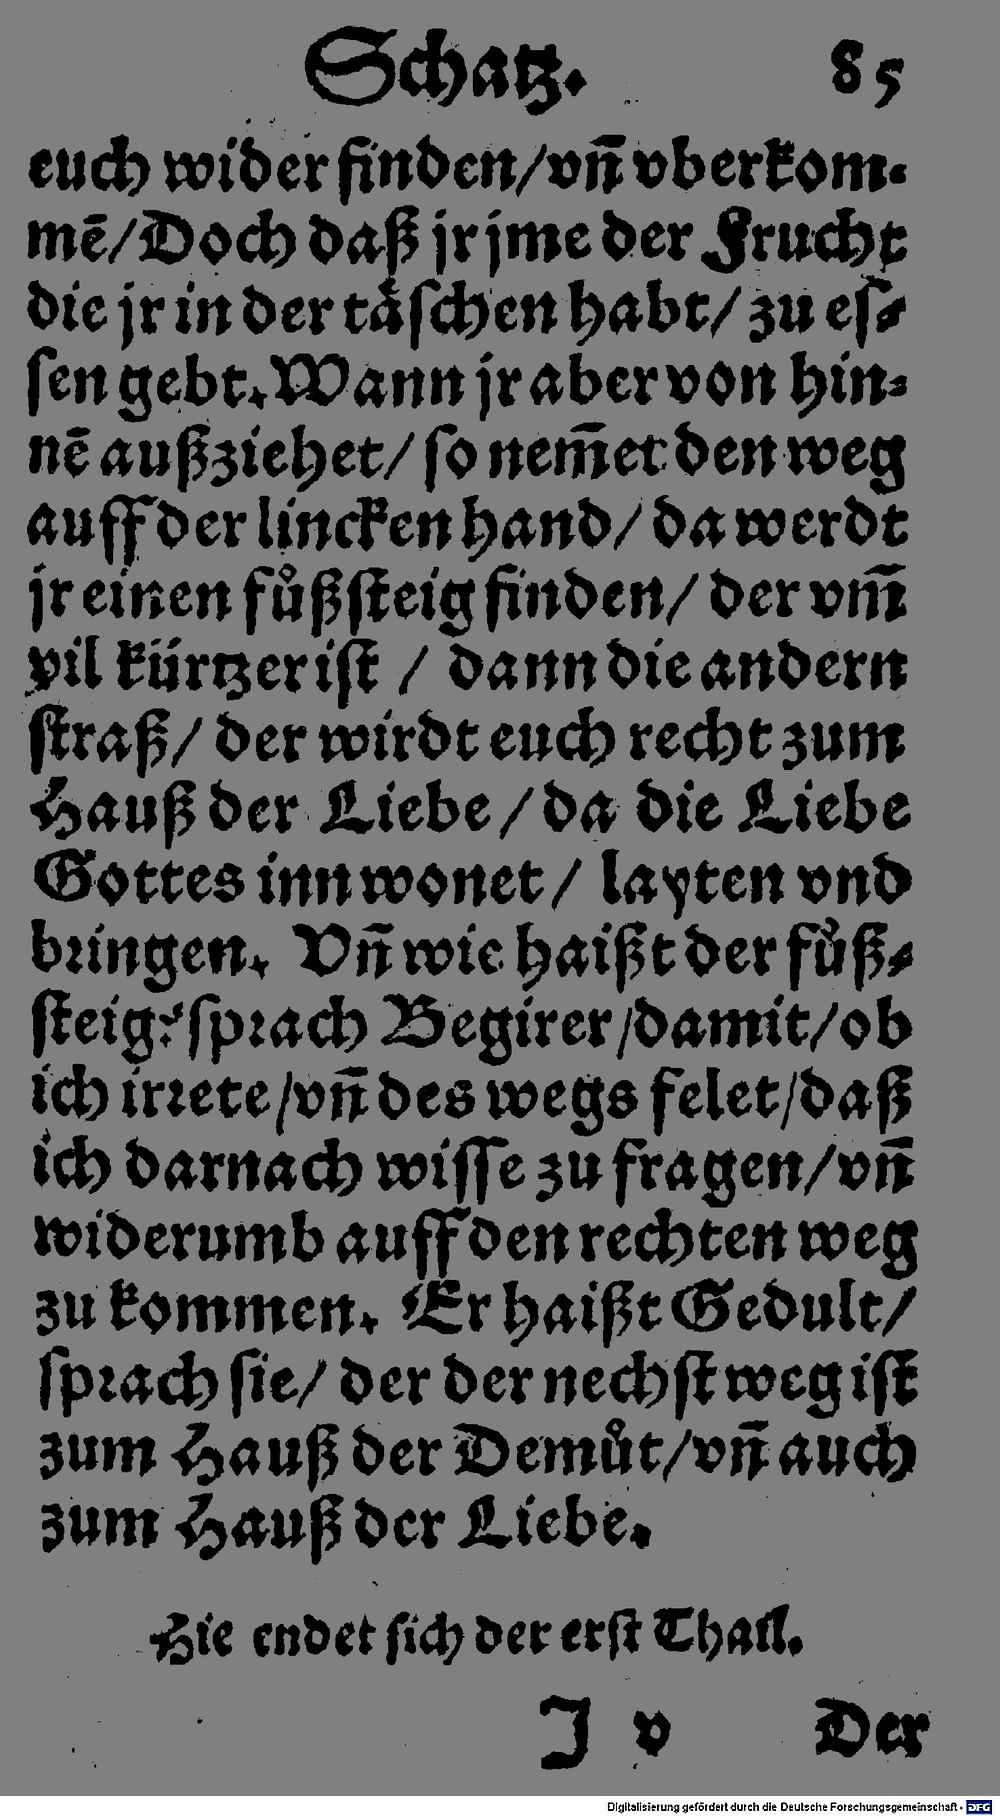 Schatz. 85
euch wider finden/vn̄ vberkom⸗
mē/Doch daß jr jme der Frucht
die jr in der taͤschen habt/ zu es⸗
sen gebt. Wann jr aber von hin⸗
nē außziehet/ so nem̄et den weg
auff der lincken hand/ da werdt
jr einen fůßsteig finden/ der vm̄
vil kürtzer ist / dann die andern
straß/ der wirdt euch recht zum
Hauß der Liebe / da die Liebe
Gottes innwonet/ layten vnd
bringen. Vn̄ wie haißt der fůß⸗
steig? sprach Begirer/damit/ob
ich irrete/vn̄ des wegs felet/daß
ich darnach wisse zu fragen/vn̄
widerumb auff den rechten weg
zu kommen. Er haißt Gedult/
sprach sie/ der der nechst weg ist
zum Hauß der Demůt/vn̄ auch
zum Hauß der Liebe.
Hie endet sich der erst Thail.
J v Der
Digitalisierung gefördert durch die Deutsche Forschungsgemeinschaft - DFG